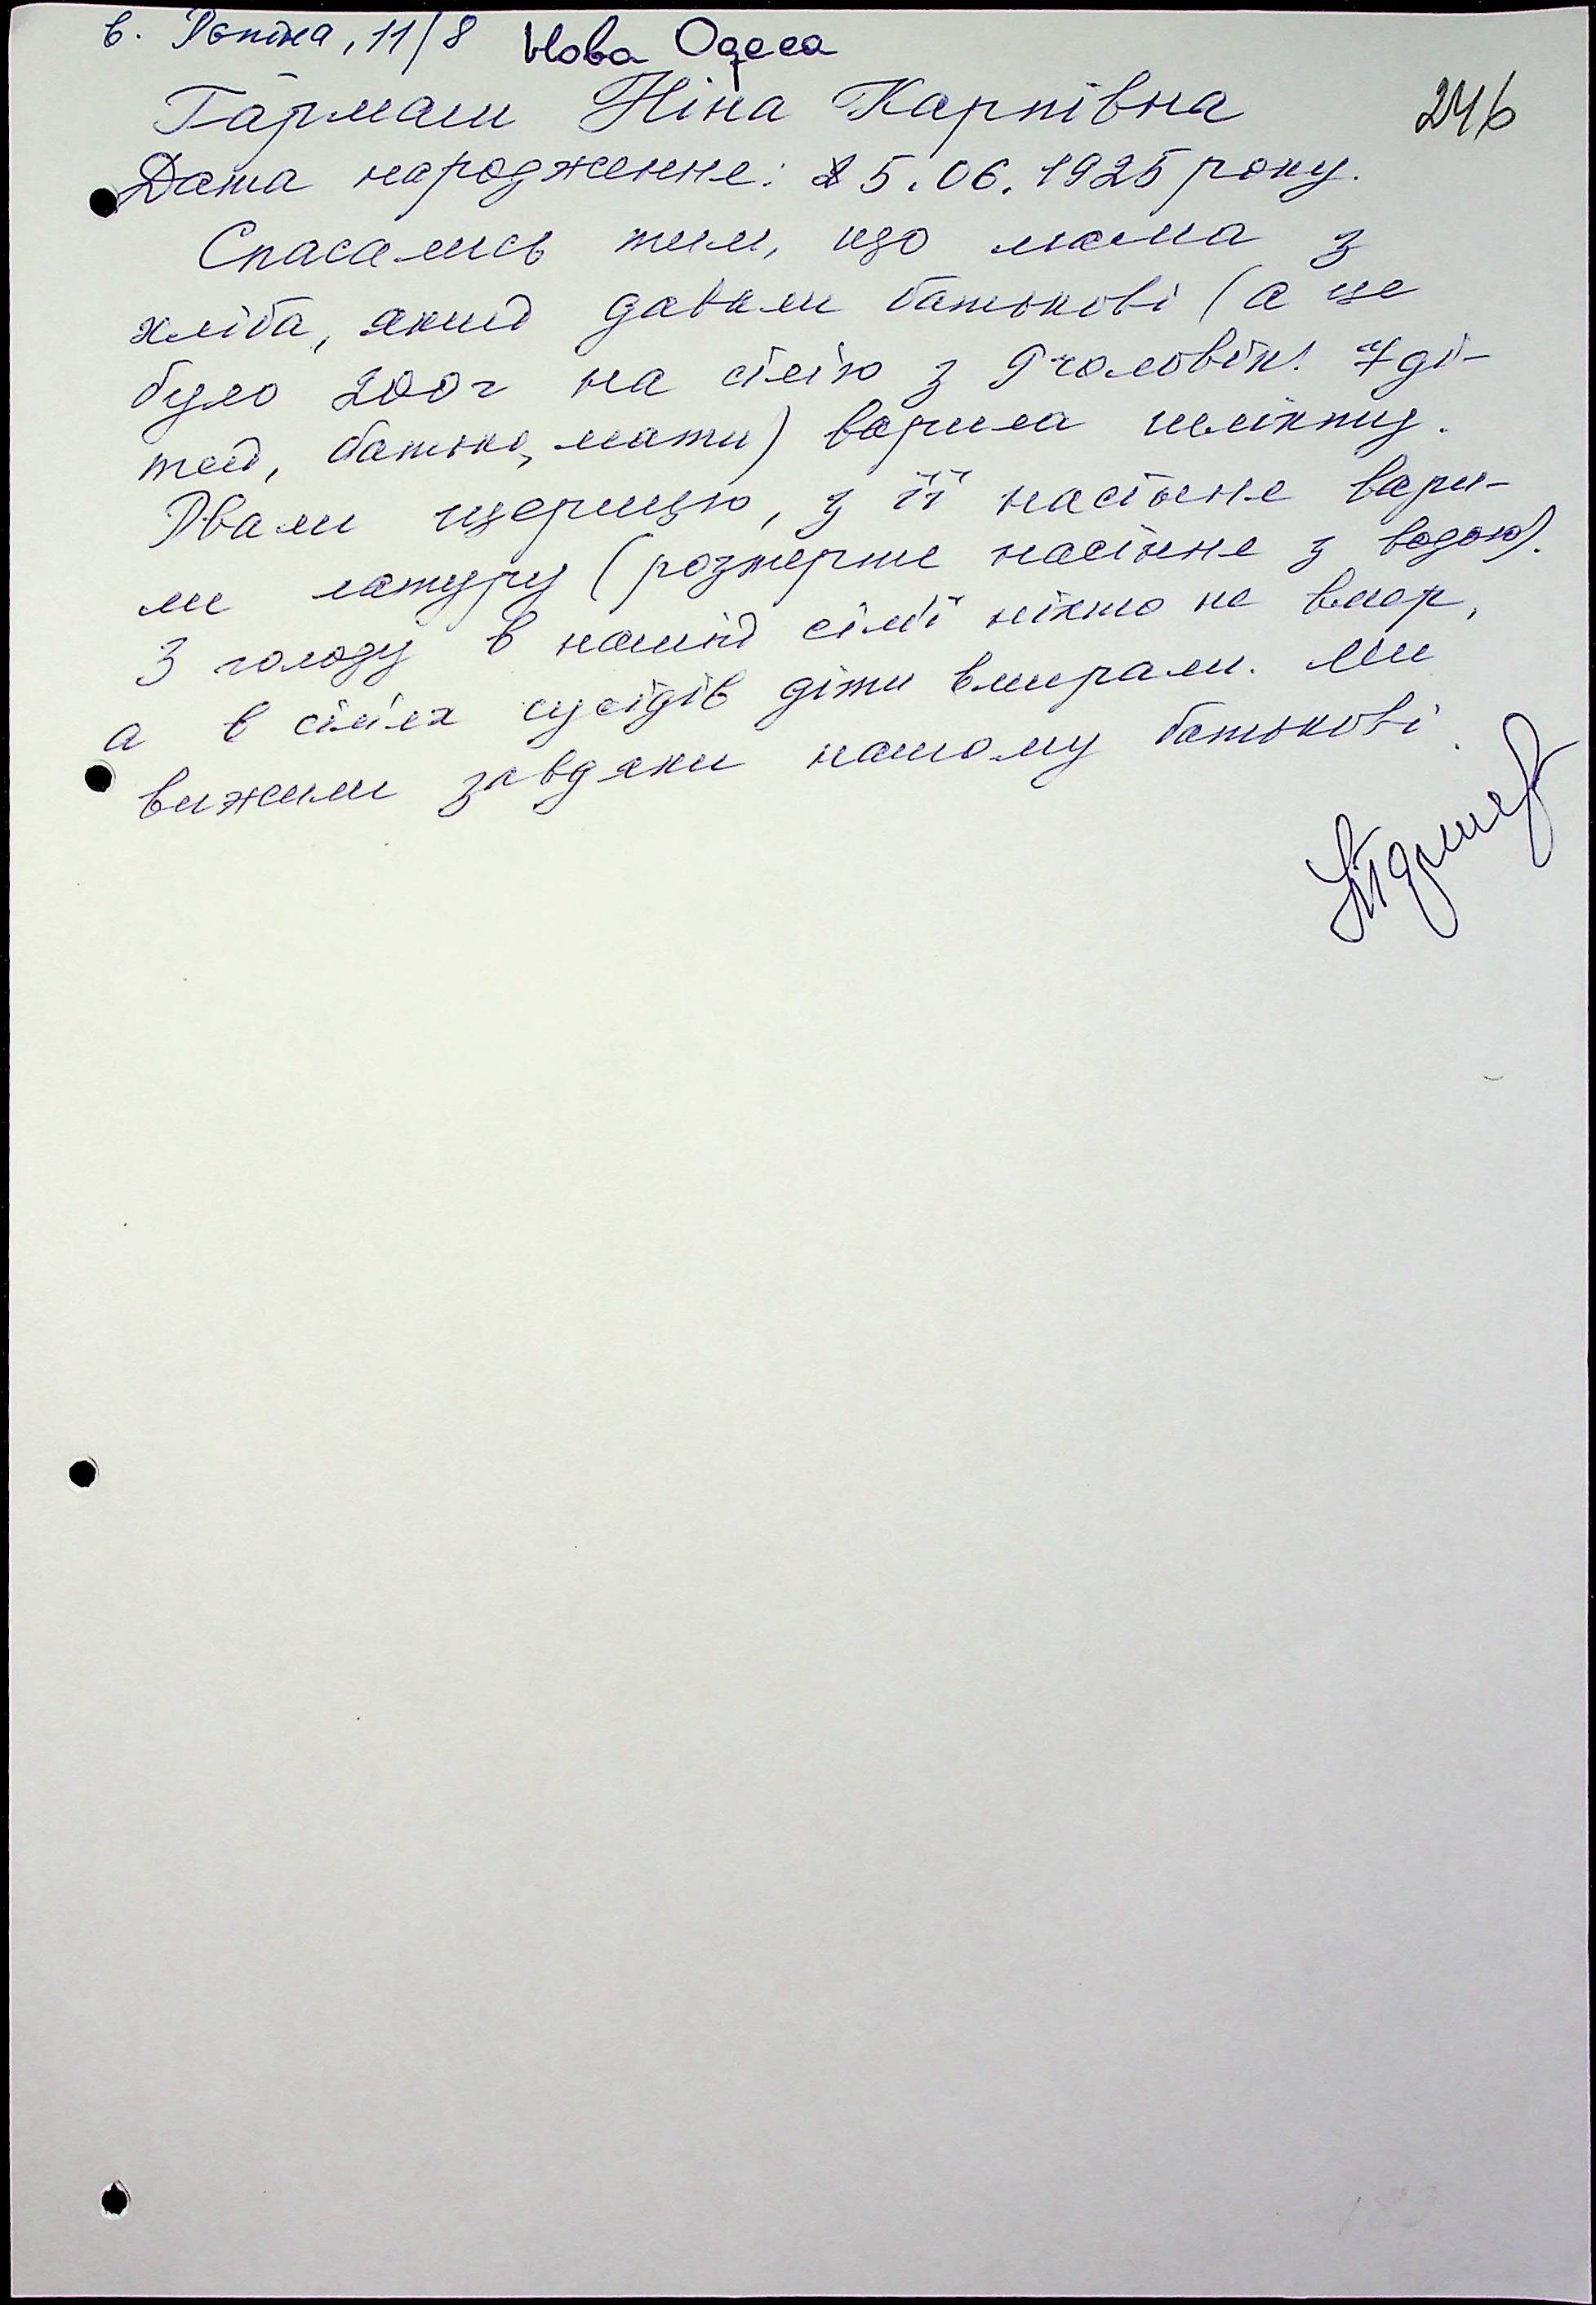 в. Рєпіна, 11/8 Нова Одеса
Гармаш Ніна Карпівна 246
Дата народження: 5.06.1925 року.
Спасались тим, що мама з
хліба, який давали батькові (а це
було 200г на сім'ю з 9 чоловік. 7 ді-
тей, батько, мати) варила
Рвали щерицю, з її насіння вари-
ли матуру (розтерте насіння з водою).
З голоду в нашій сім'ї ніхто не вмер,
а в сім'ях сусідів діти вмирали. Ми
вижили завдяки нашому батькові.